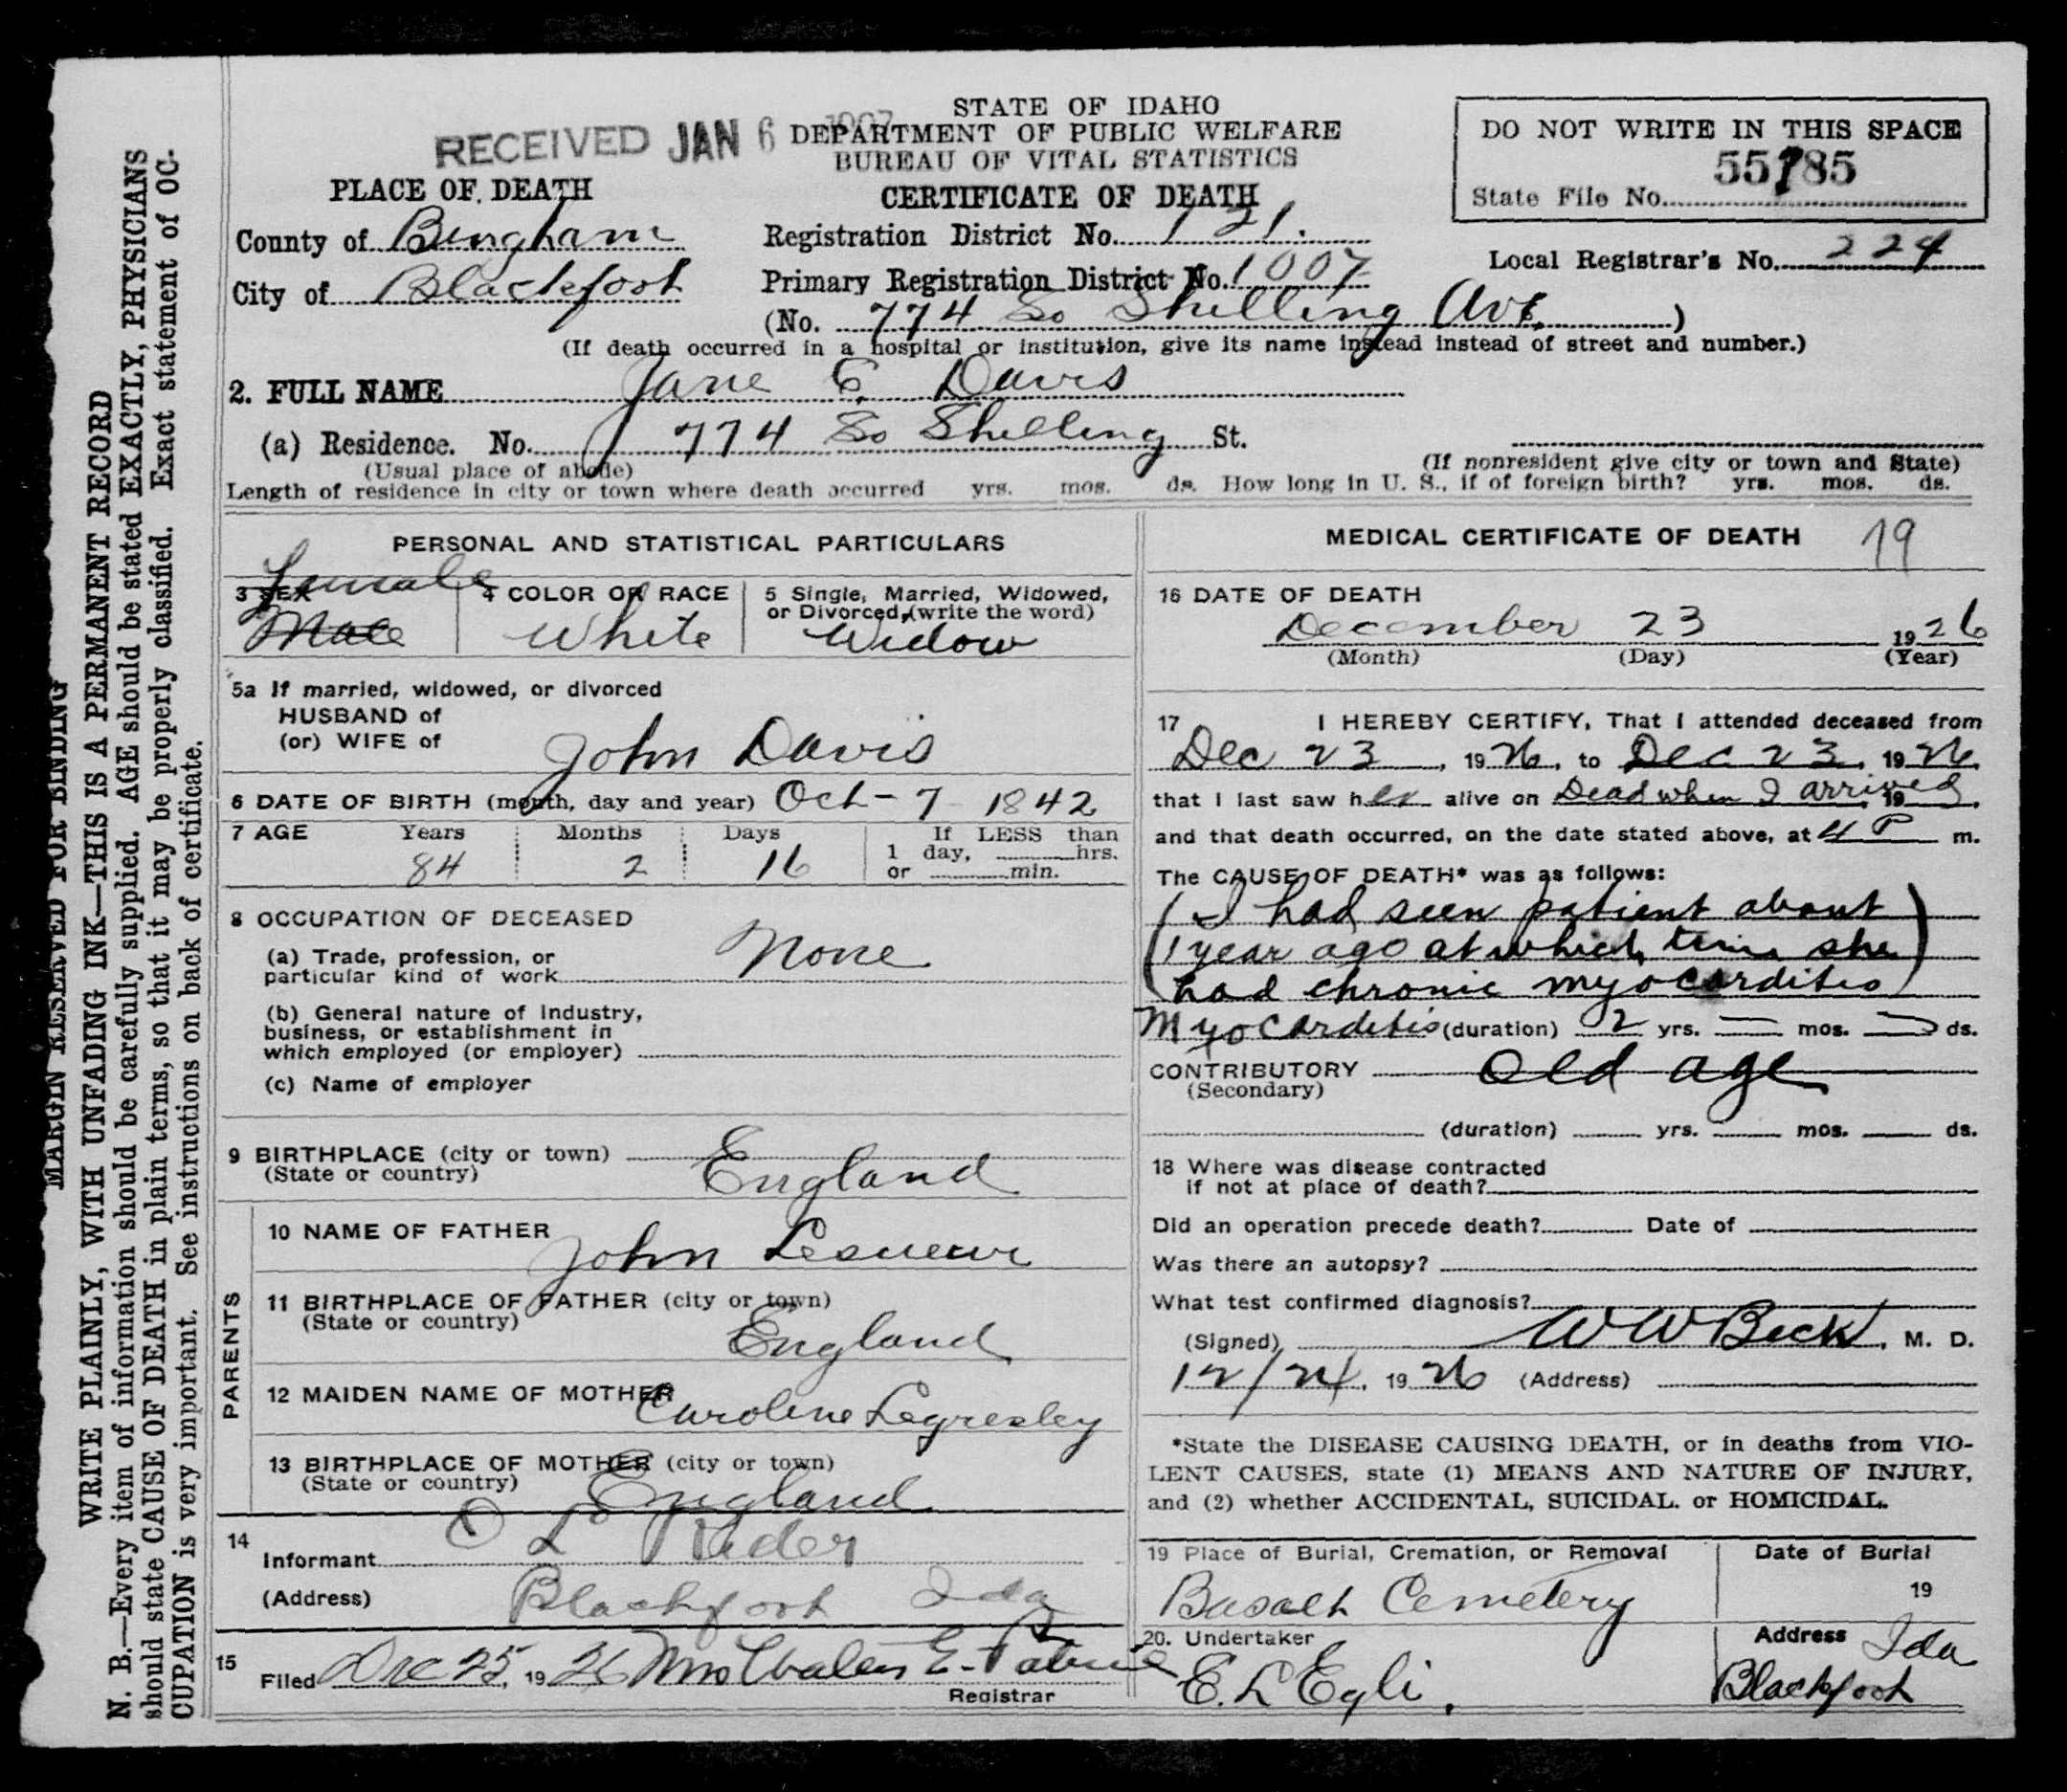 STATE OF IDAHO
RECEIVED JAN 6 DEPARTMENT OF PUBLIC WELFARE
BUREAU OF VITAL STATISTICS
CERTIFICATE OF DEATH
DO NOT WRITE IN THIS SPACE
55785
State File No.
PLACE OF DEATH
County of Bingham
City of Blackfoot
Registration District No. 121.
Primary Registration District No. 1007
Local Registrar's No. 224
(No. 774 So Shilling Ave. )
(If death occurred in a hospital or institution, give its name instead instead of street and number.)
2. FULL NAME Jane E. Davis
(a) Residence. No. 774 So Shilling St.
(Usual place of abode)
(If nonresident give city or town and State)
Length of residence in city or town where death occurred yrs. mos. ds. How long in U. S., if of foreign birth? yrs. mos. ds.
PERSONAL AND STATISTICAL PARTICULARS
Female
3 SEX 4 COLOR OR RACE 5 Single, Married, Widowed, or Divorced, (write the word)
Male White Widow
5a If married, widowed, or divorced
HUSBAND of
(or) WIFE of John Davis
6 DATE OF BIRTH (month, day and year) Oct - 7 1842
7 AGE Years Months Days If LESS than
1 day, hrs.
84 2 16 or min.
8 OCCUPATION OF DECEASED
(a) Trade, profession, or
particular kind of work None
(b) General nature of Industry,
business, or establishment in
which employed (or employer)
(c) Name of employer
9 BIRTHPLACE (city or town)
(State or country) England
PARENTS
10 NAME OF FATHER John Lesueur
11 BIRTHPLACE OF FATHER (city or town)
(State or country) England
12 MAIDEN NAME OF MOTHER Caroline Legresley
13 BIRTHPLACE OF MOTHER (city or town)
(State or country) England
14
Informant O L Rider
(Address) Blackfoot Ida
15
Filed Dec 25, 1926 Mrs E.
Registrar
MEDICAL CERTIFICATE OF DEATH 19
16 DATE OF DEATH
December 23 1926
(Month) (Day) (Year)
17 I HEREBY CERTIFY, That I attended deceased from
Dec 23, 1926, to Dec 23, 1926,
that I last saw her alive on Dead when I arrived, 19
and that death occurred, on the date stated above, at 4 P m.
The CAUSE OF DEATH* was as follows:
(I had seen patient about
1 year ago at which time she
had chronic myocarditis)
Myocarditis (duration) 2 yrs. — mos. — ds.
CONTRIBUTORY Old age
(Secondary)
(duration) yrs. mos. ds.
18 Where was disease contracted
if not at place of death?
Did an operation precede death? Date of
Was there an autopsy?
What test confirmed diagnosis?
(Signed) W W Beck, M. D.
12/24, 1926 (Address)
*State the DISEASE CAUSING DEATH, or in deaths from VIO-
LENT CAUSES, state (1) MEANS AND NATURE OF INJURY,
and (2) whether ACCIDENTAL, SUICIDAL. or HOMICIDAL.
19 Place of Burial, Cremation, or Removal Date of Burial
Basalt Cemetery 19
20. Undertaker Address Ida
E. L Egli. Blackfoot
MARGIN RESERVED FOR BINDING
WRITE PLAINLY, WITH UNFADING INK—THIS IS A PERMANENT RECORD
N. B.—Every item of information should be carefully supplied. AGE should be stated EXACTLY, PHYSICIANS
should state CAUSE OF DEATH in plain terms, so that it may be properly classified. Exact statement of OC-
CUPATION is very important. See instructions on back of certificate.